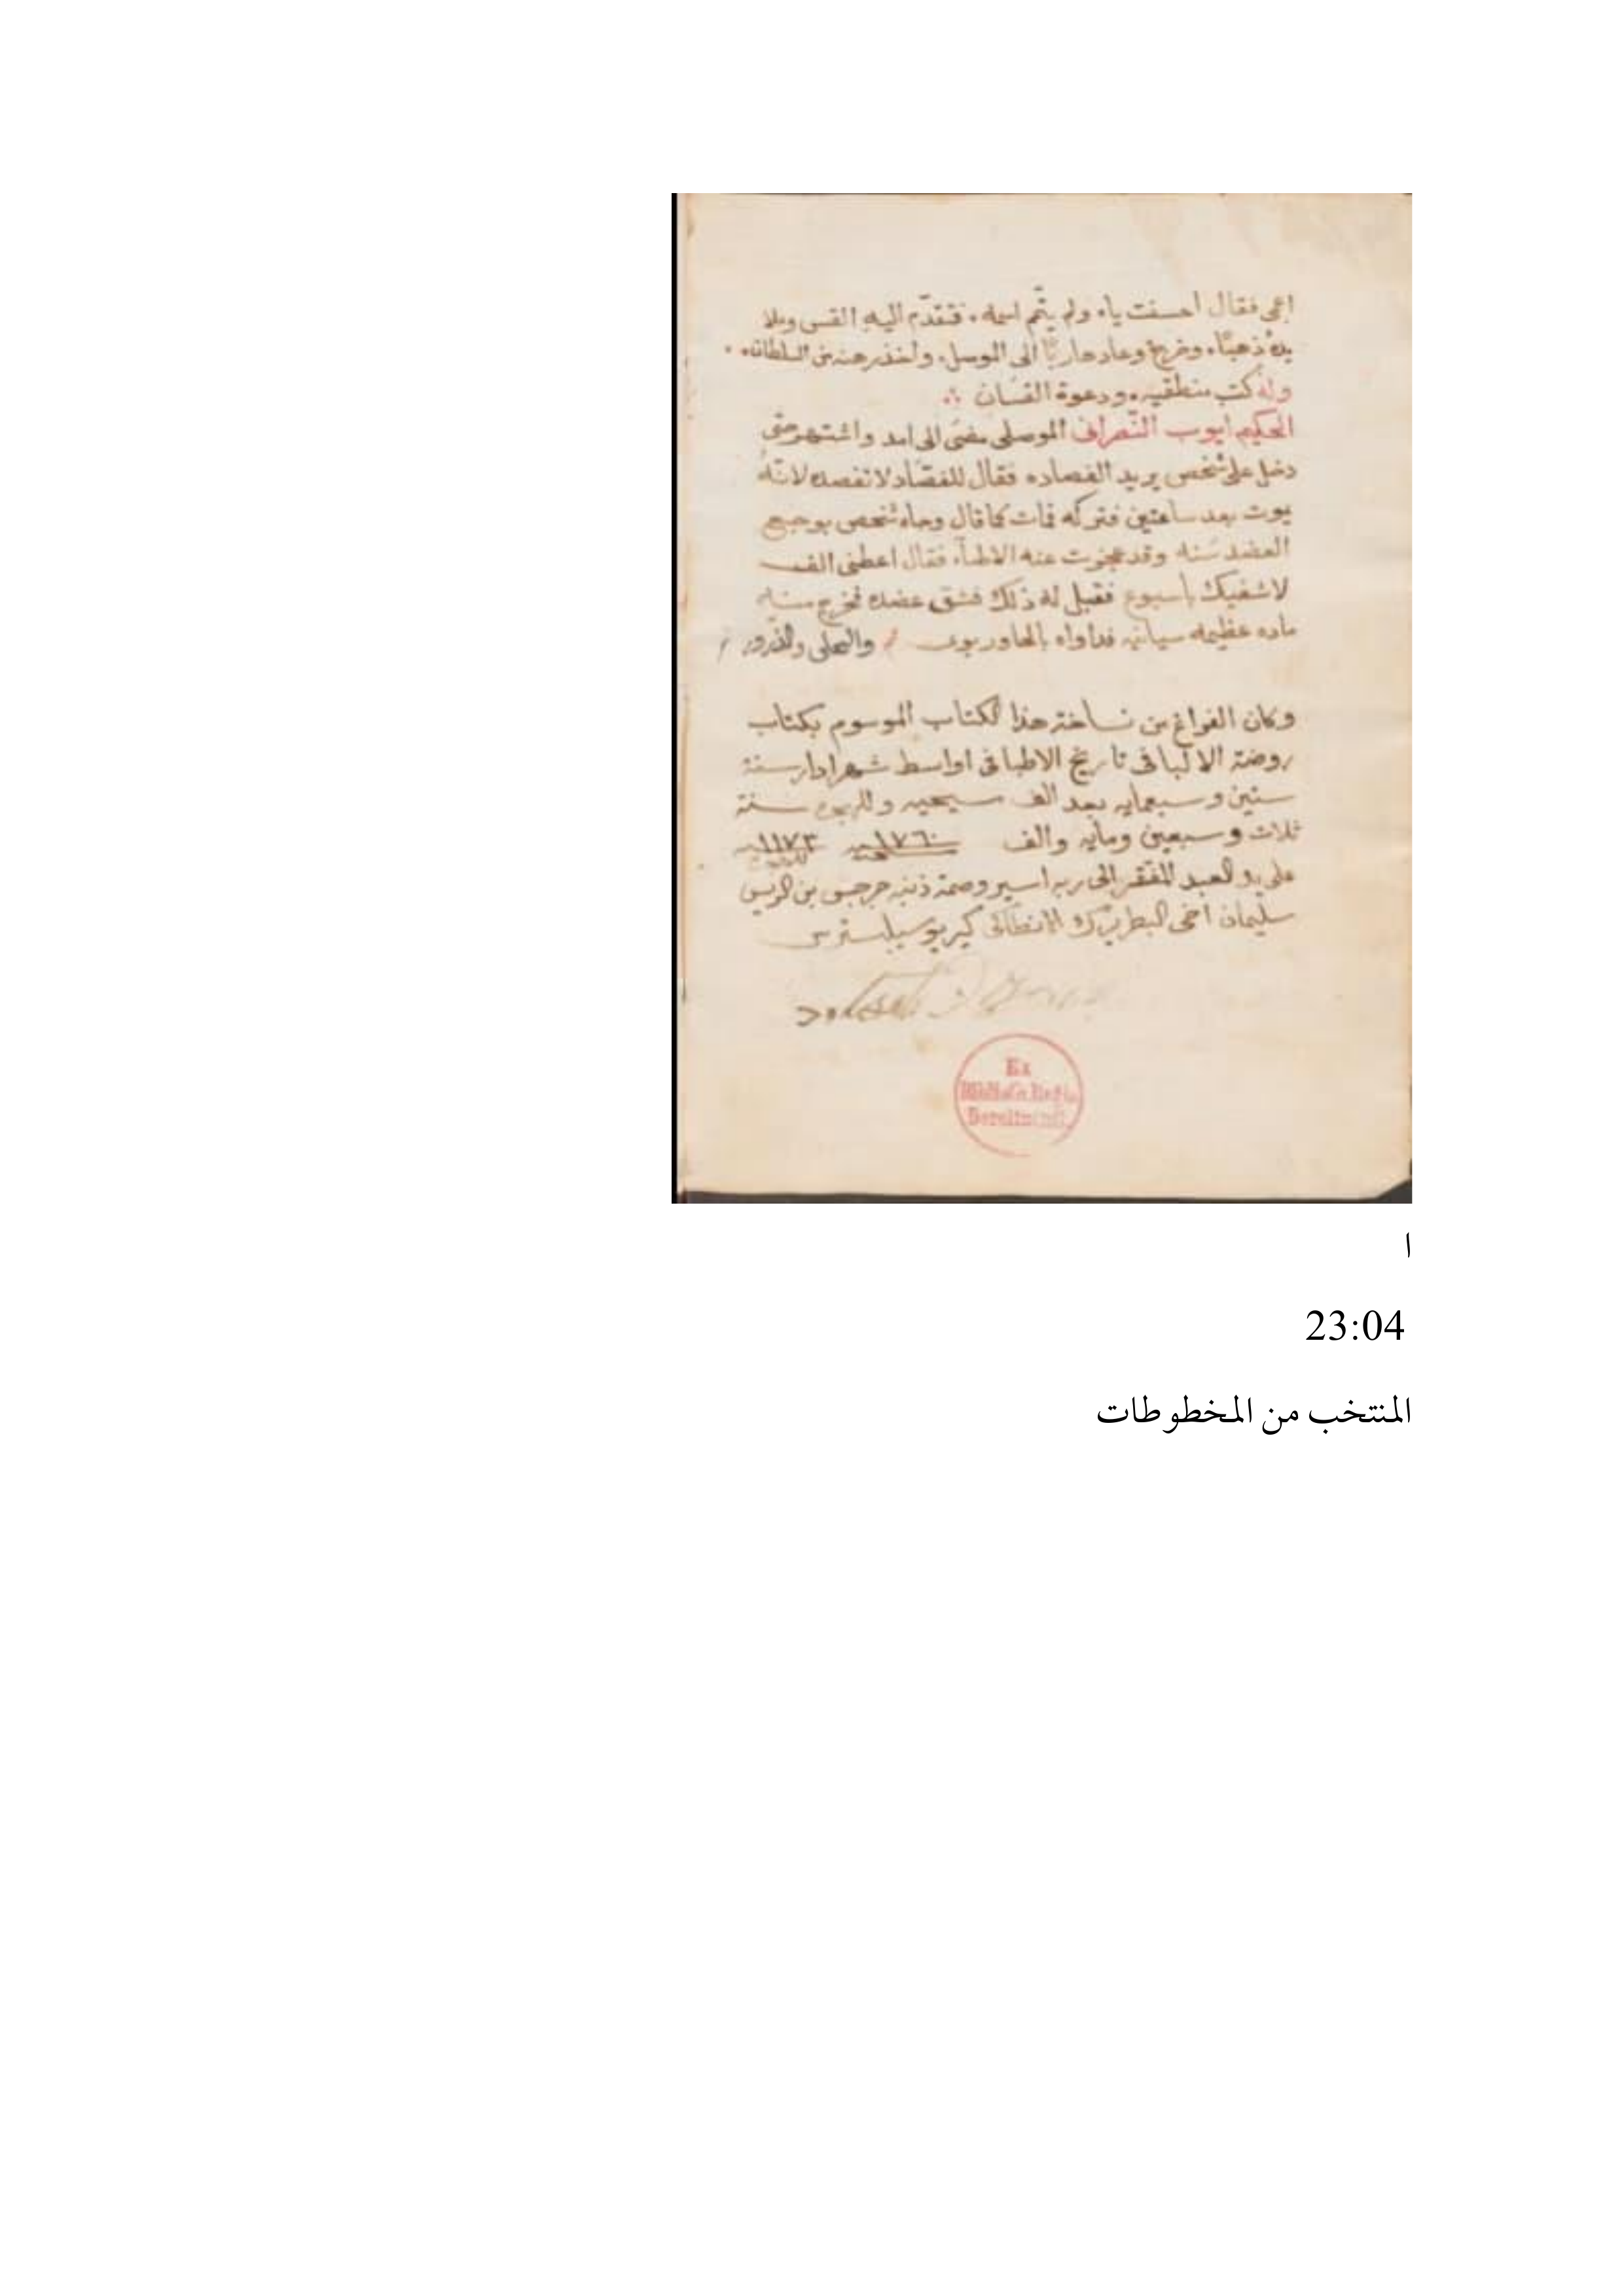 اعمى فقال احسنت يا، ولم يتّم اسمه. فتقدّم اليه القس وملا
يدهُ ذهبًا. وخرج وعاد هاربًا الى الموسل. واخذ رهنه من السلطان.
وله كتب منطقيه. ودعوة القسان
الحكيم ايوب النّصرانى الموصلى مضى الى امد واشتهر حتى
دخل على شخص يريد الفصاده فقال للفصّاد لا تفصده لانّهُ
يموت بعد ساعتين فتركه فمات كما قال وجاه شخص بوجع
العضد سنه وقد عجزت عنه الاطباء فقال اعطنى الف
لاشفيك باسبوع فقبل له ذلك فشق عضده فخرج منه
ماده عظيمه فداواه والذرور
وكان الفراغ من نساخة هذا الكتاب الموسوم بكتاب
روضة الالبا فى تاريخ الاطبا فى اواسط شهر ادار سنة
ستين وسبعمايه بعد الف مسيحيه وللهجره سنة
ثلاث وسبعين ومايه والف ١٧٦٠ ١١٧٣
على يد العبد المفتقر الى ربه اسير وصمة ذنبه جرجس بن الريس
سليمان اخى البطريرك الانطاكى كير يوسيلسترس
Ex
Biblioth. Regia
Berolinensi.
ا
23:04
المنتخب من المخطوطات